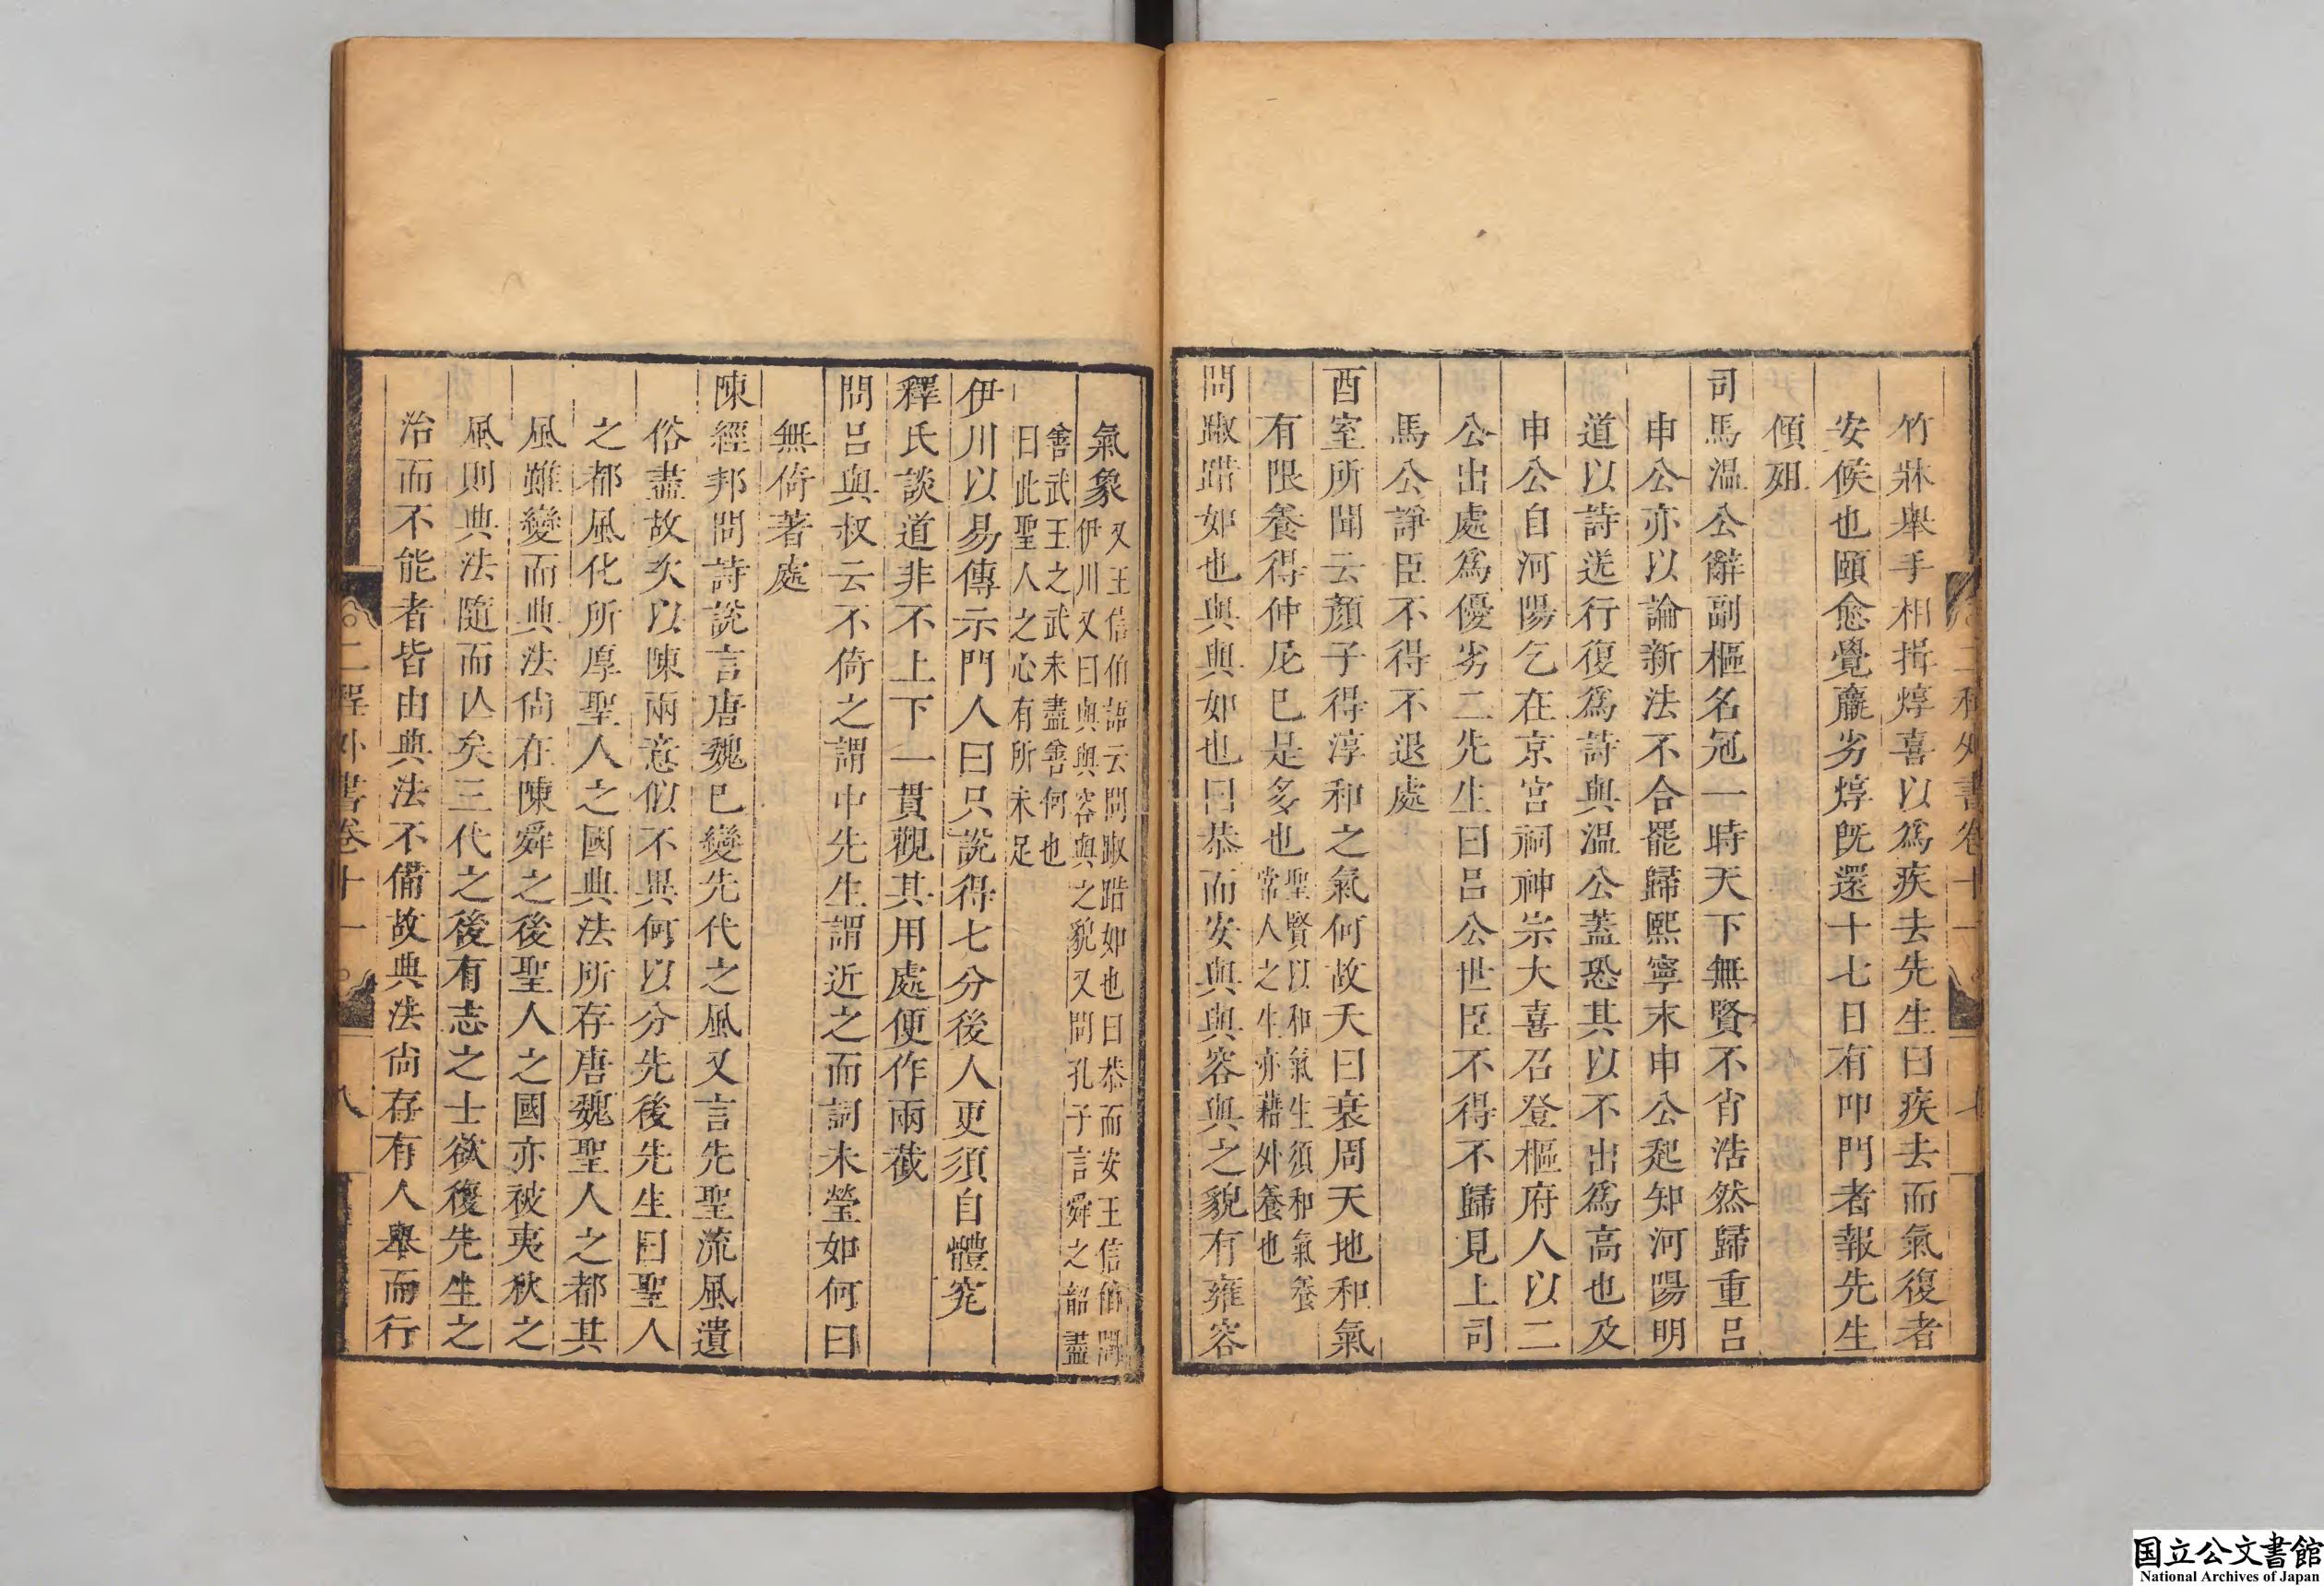 二程外書卷十一
七
竹牀舉手相揖焞喜以爲疾去先生曰疾去而氣復者
安候也頤愈覺羸劣焞旣還十七日有叩門者報先生
傾殂
司馬溫公辭副樞名冠一時天下無賢不肖浩然歸重呂
申公亦以論新法不合罷歸熙寧末申公起知河陽明
道以詩送行復爲詩與溫公蓋恐其以不出爲高也及
申公自河陽乞在京宮祠神宗大喜召登樞府人以二
公出處爲優劣二先生曰呂公世臣不得不歸見上司
馬公諍臣不得不退處
酉室所聞云顏子得淳和之氣何故夭曰衰周天地和氣
有限養得仲尼已是多也聖賢以和氣生須和氣養
常人之生亦藉外養也
問踧踖如也與與如也曰恭而安與與容與之貌有雍容
氣象又王信伯語云問踧踖如也曰恭而安王信伯問
伊川又曰與與容與之貌又問孔子言舜之韶盡
善武王之武未盡善何也
曰此聖人之心有所未足
伊川以易傳示門人曰只說得七分後人更須自體究
釋氏談道非不上下一貫觀其用處便作兩截
問呂與叔云不倚之謂中先生謂近之而詞未瑩如何曰
無倚著處
陳經邦問詩說言唐魏已變先代之風又言先聖流風遺
俗盡故次以陳兩意似不異何以分先後先生曰聖人
之都風化所厚聖人之國典法所存唐魏聖人之都其
風雖變而典法尙在陳舜之後聖人之國亦被夷狄之
風則典法隨而亾矣三代之後有志之士欲復先生之
治而不能者皆由典法不備故典法尙存有人舉而行
二程外書卷十一
八
国立公文書館
National Archives of Japan